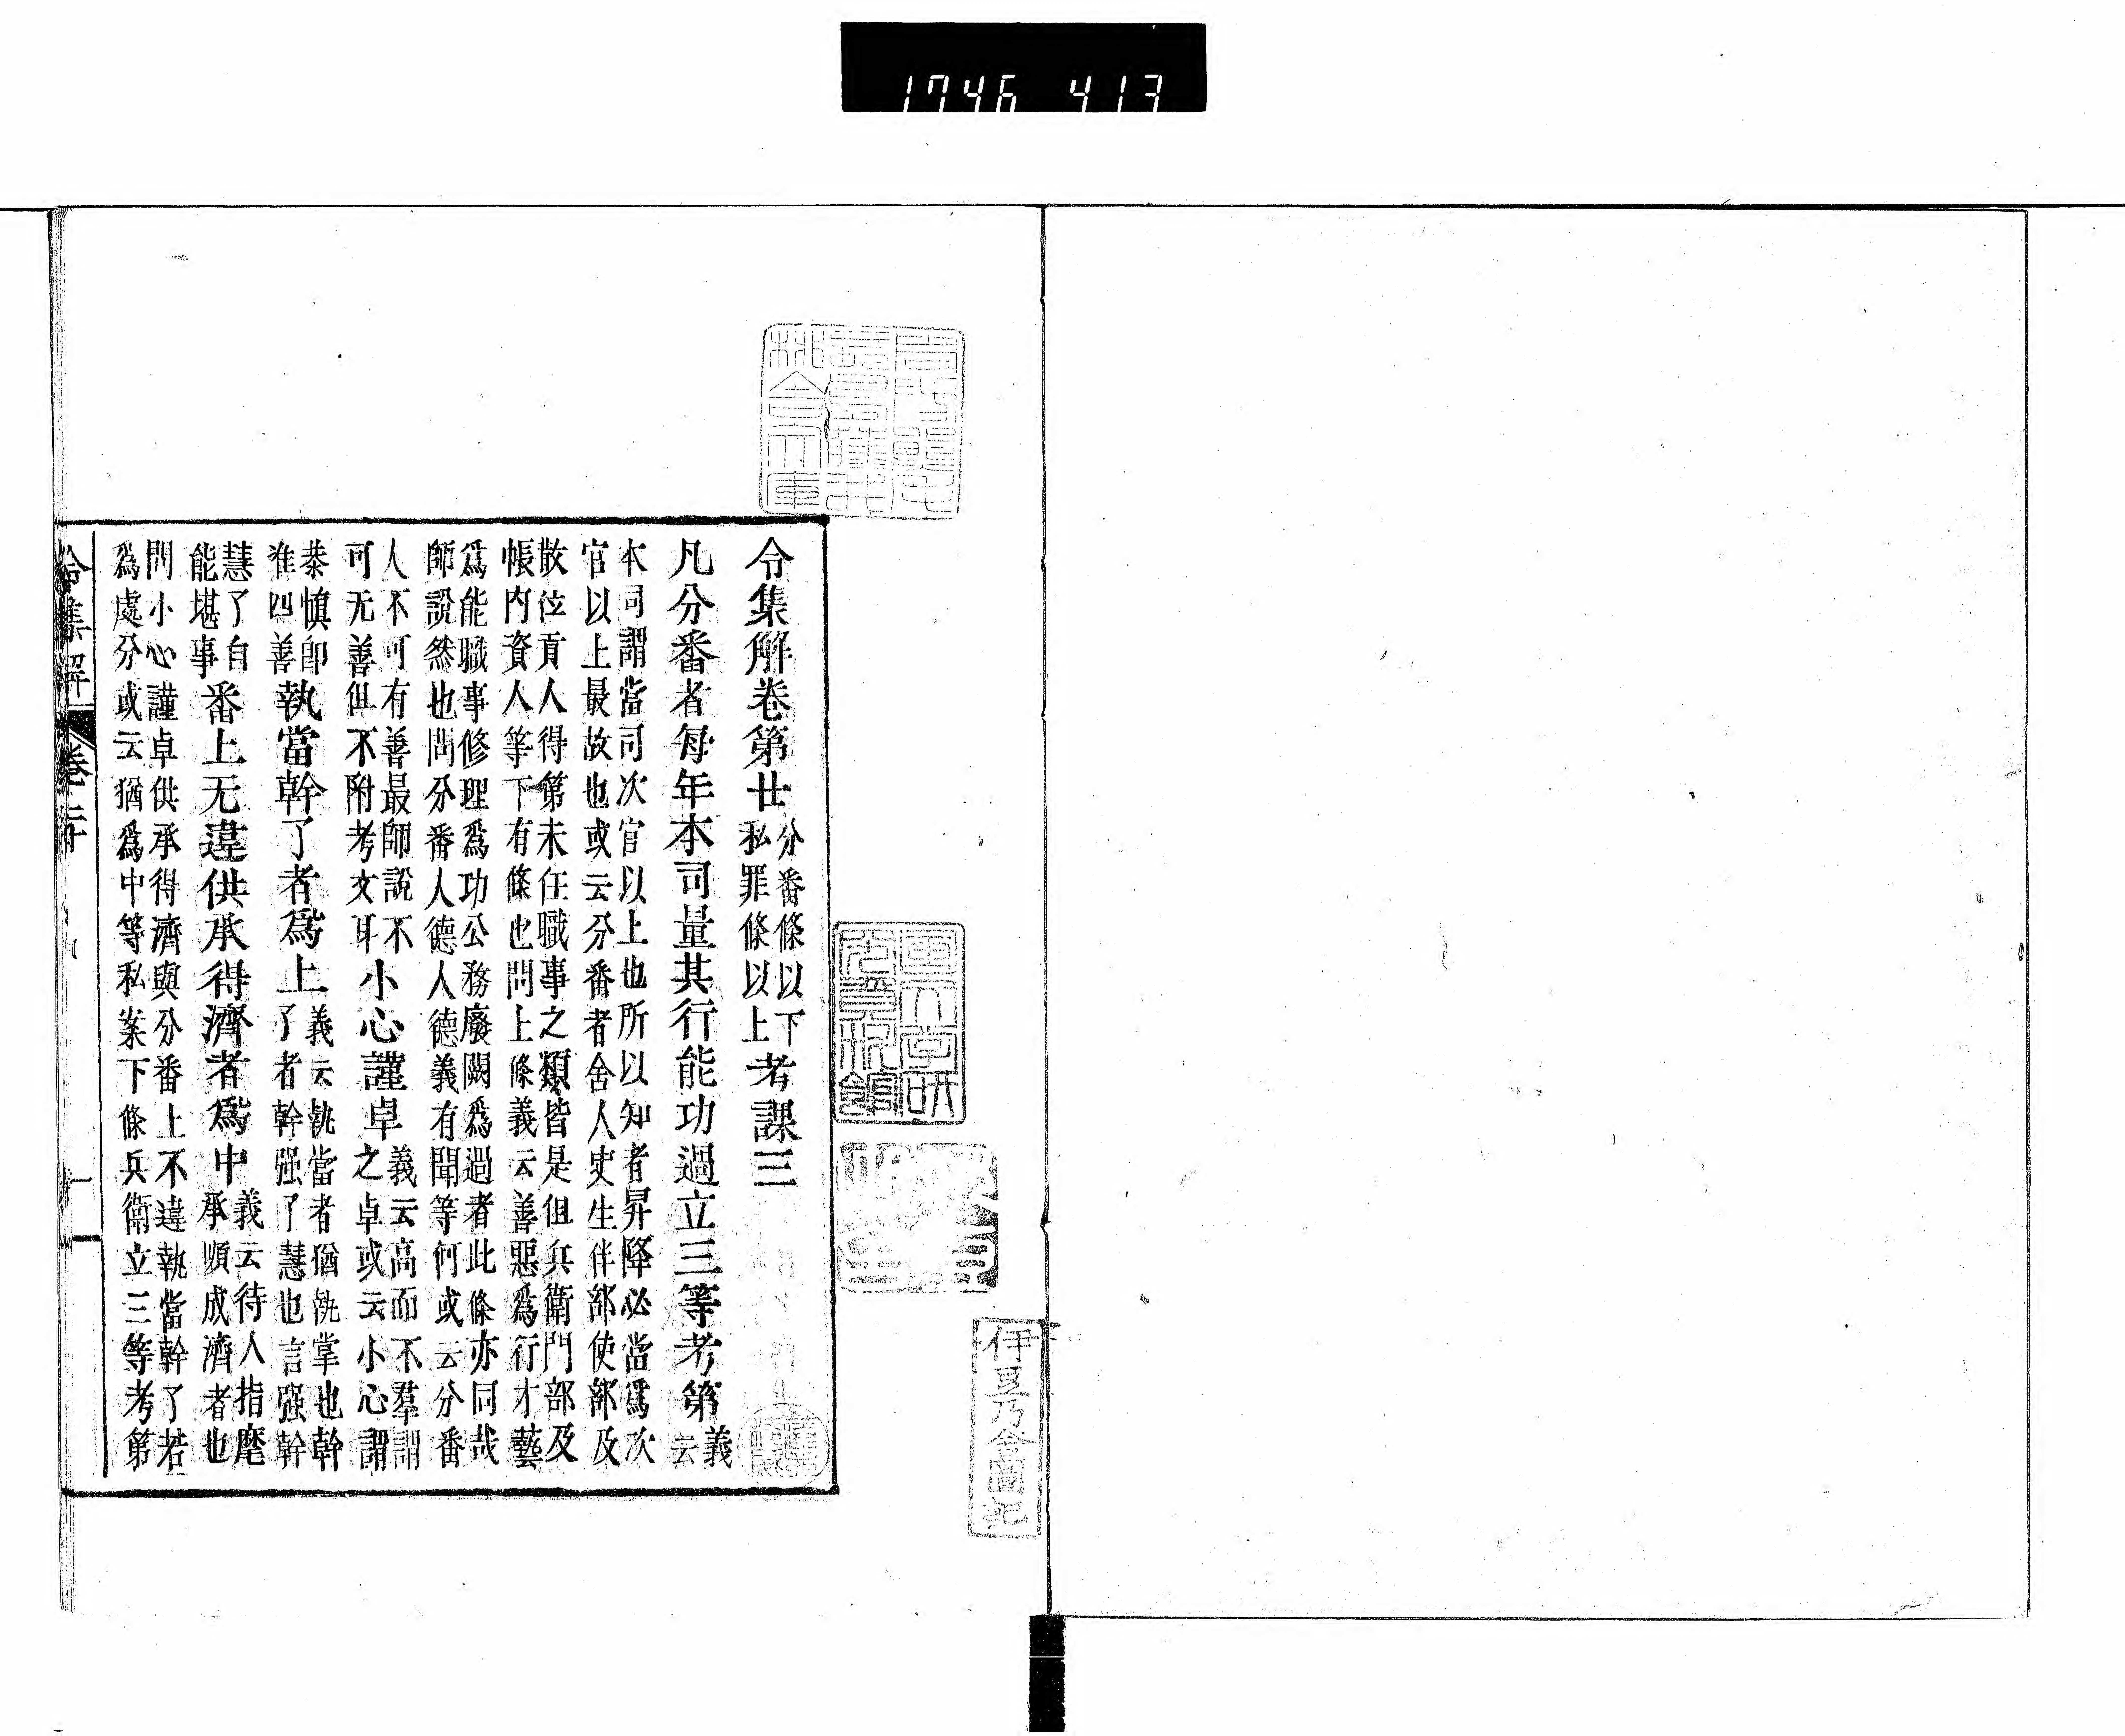 1746 413
令集解卷第廿 分番條以下 考課三
私罪條以上
凡分番者每年本司量其行能功過立三等考第 義
云
本司謂當司次官以上也所以知者昇降必當爲次
官以上最故也或云分番者舍人史生伴部使部及
散位貢人得第未任職事之類皆是但兵衛門部及
帳内資人等下有條也問上條義云善惡爲行才藝
爲能職事修理爲功公務廢闕爲過者此條亦同哉
師說然也問分番人德人德義有聞等何或云分番
人不可有善最師說不
可无善但不附考文耳
小心謹卓 義云高而不羣謂
之卓或云小心謂
恭愼卽
准四善
執當幹了者爲上 義云執當者猶執掌也幹
了者幹强了慧也言强幹
慧了自
能堪事
番上无違供承得濟者爲中 義云待人指麾
承順成濟者也
問小心謹卓供承得濟與分番上不違執當幹了若
爲處分或云猶爲中等私案下條兵衛立三等考第
令集解 卷二十 一
伊豆乃舍圖記